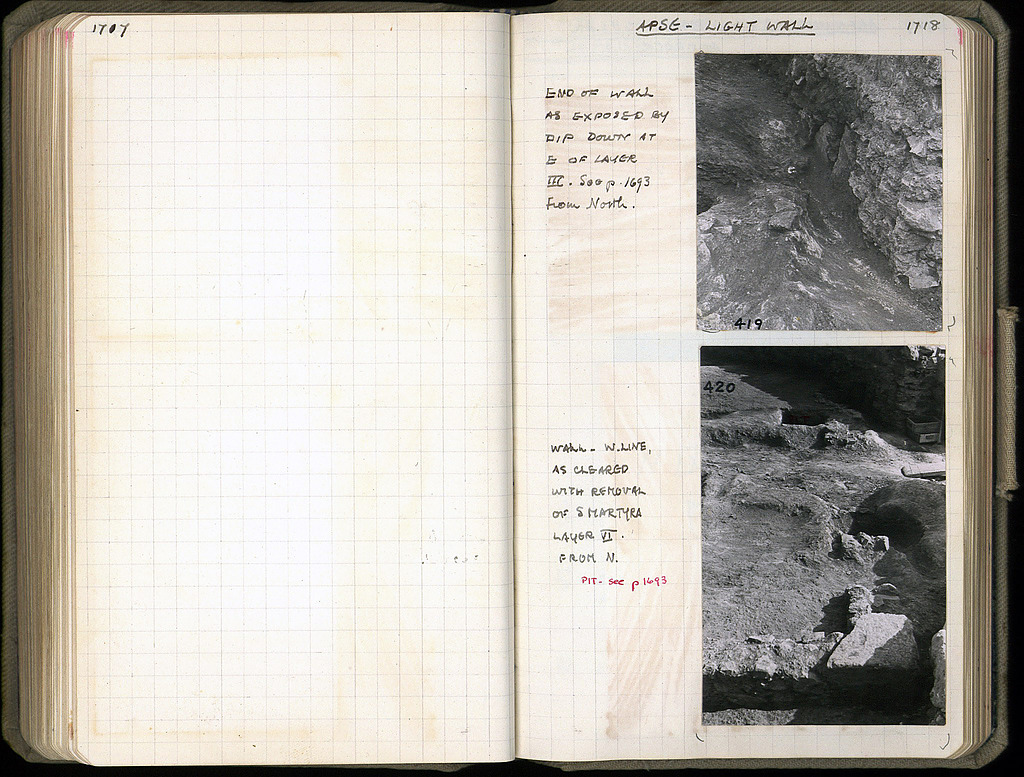 1707
APSE - LIGHT WALL
1718
END OF WALL
AS EXPOSED BY
DIP DOWN AT
E OF LAYER
III. See p. 1693
From North.
419
420
WALL - W. LINE,
AS CLEARED
WITH REMOVAL
OF S MARTYRA
LAYER VI.
FROM N.
PIT - see p 1693